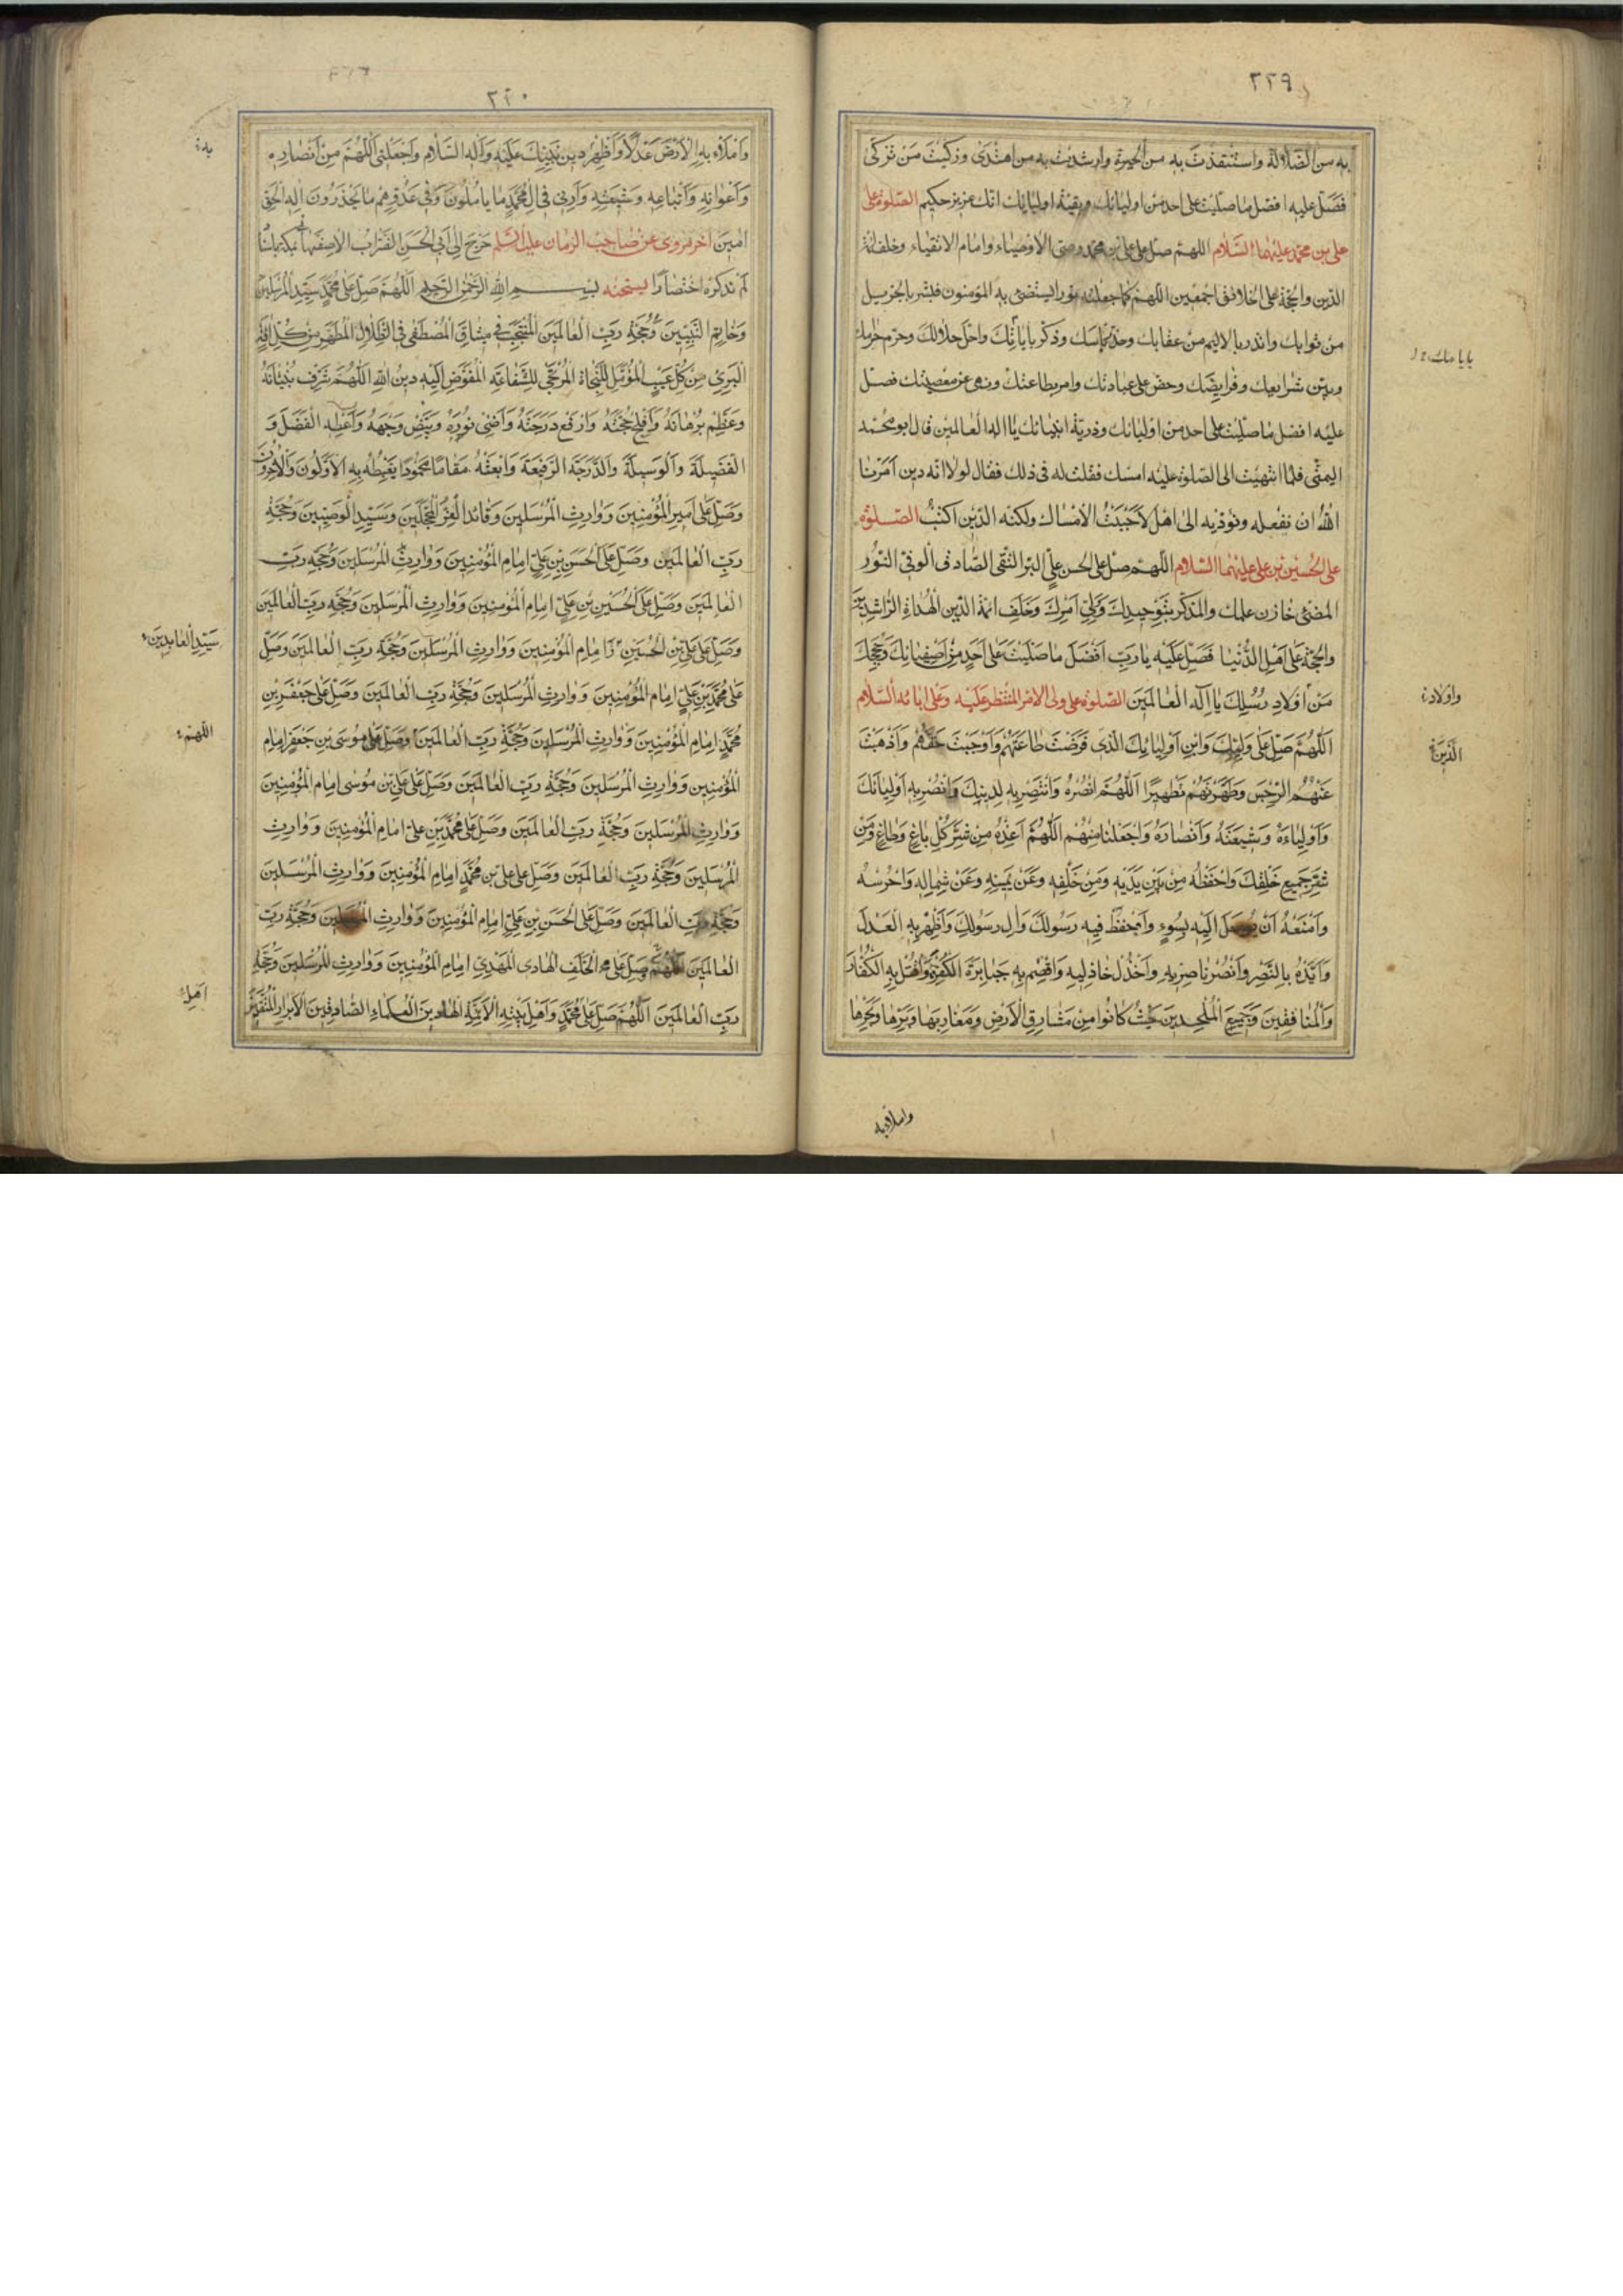 ٢٣٩
به من الضلالة واستنقذت به من الحيرة وارشدت به من اهتدى وزكيت من تزكى
فصل عليه افضل ما صليت على احد من اوليائك وبقية اوليائك انك عزيز حكيم الصلوة على
على بن محمد عليهما السلام اللهم صل على على بن محمد وصى الاوصياء وامام الاتقياء وخلف ائمة
الدين والحجة على الخلائق اجمعين اللهم كما جعلته نورا يستضئ به المؤمنون فبشر بالجزيل
من ثوابك وانذر بالاليم من عقابك وحذر باسك وذكر باياتك واحل حلالك وحرم حرامك
وبين شرايعك وفرايضك وحض على عبادتك وامر بطاعتك ونهى عن معصيتك فصل
عليه افضل ما صليت على احد من اوليائك وذرية انبيائك يا اله العالمين قال ابو محمد
اليمنى فلما انتهيت الى الصلوة عليه امسك فقلت له فى ذلك فقال لولا انه دين امرنا
الله ان نفعله ونؤديه الى اهله لاحببت الامساك ولكنه الدين اكتب الصلوة
على الحسين بن على عليهما السلام اللهم صل على الحسن بن على البر التقى الصادق الوفى النور
المضئ خازن علمك والمذكر بتوحيدك وولى امرك وخلف ائمة الدين الهداة الراشدين
والحجة على اهل الدنيا فصل عليه يا رب افضل ما صليت على احد من اصفيائك وحججك
من اولاد رسلك يا اله العالمين الصلوة على ولى الامر المنتظر عليه وعلى ابائه السلام
اللهم صل على وليك وابن اوليائك الذى فرضت طاعتهم واوجبت حقهم واذهبت
عنهم الرجس وطهرتهم تطهيرا اللهم انصره وانتصر به لدينك وانصر به اوليائك
واولياءه وشيعته وانصاره واجعلنا منهم اللهم اعذه من شر كل باغ وطاغ ومن
شر جميع خلقك واحفظه من بين يديه ومن خلفه وعن يمينه وعن شماله واحرسه
وامنعه ان يوصل اليه بسوء واحفظ فيه رسولك وال رسولك واظهر به العدل
وايده بالنصر وانصر ناصريه واخذل خاذليه واقصم به جبابرة الكفرة واقتل به الكفار
والمنافقين وجميع الملحدين حيث كانوا من مشارق الارض ومغاربها وبرها وبحرها
واولاده
الذين
واملاء به
٢٤٠
واملاء به الارض عدلا واظهر دين نبيك عليه واله السلام واجعلنى اللهم من انصاره
واعوانه واتباعه وشيعته وارنى فى ال محمد ما ياملون وفى عدوهم ما يحذرون اله الحق
امين اخر مروى عن صاحب الزمان عليه السلم خرج الى ابى الحسن الضراب الاصفهانى بمكة باسناد
لم نذكره اختصارا نسخته بسم الله الرحمن الرحيم اللهم صل على محمد سيد المرسلين
وخاتم النبيين وحجة رب العالمين المنتجب فى ميثاق المصطفى فى الظلال المطهر من كل افة
البرى من كل عيب المؤمل للنجاة المرتجى للشفاعة المفوض اليه دين الله اللهم شرف بنيانه
وعظم برهانه وافلج حجته وارفع درجته واضئ نوره وبيض وجهه واعطه الفضل و
الفضيلة والوسيلة والدرجة الرفيعة وابعثه مقاما محمودا يغبطه به الاولون والاخرون
وصل على امير المؤمنين ووارث المرسلين وقائد الغر المحجلين وسيد الوصيين وحجة
رب العالمين وصل على الحسن بن على امام المؤمنين ووارث المرسلين وحجة رب
العالمين وصل على الحسين بن على امام المؤمنين ووارث المرسلين وحجة رب العالمين
وصل على على بن الحسين امام المؤمنين ووارث المرسلين وحجة رب العالمين وصل
على محمد بن على امام المؤمنين ووارث المرسلين وحجة رب العالمين وصل على جعفر بن
محمد امام المؤمنين ووارث المرسلين وحجة رب العالمين وصل على موسى بن جعفر امام
المؤمنين ووارث المرسلين وحجة رب العالمين وصل على على بن موسى امام المؤمنين
ووارث المرسلين وحجة رب العالمين وصل على محمد بن على امام المؤمنين ووارث
المرسلين وحجة رب العالمين وصل على على بن محمد امام المؤمنين ووارث المرسلين
وحجة رب العالمين وصل على الحسن بن على امام المؤمنين ووارث المرسلين وحجة رب
العالمين اللهم صل على الخلف الهادى المهدى امام المؤمنين ووارث المرسلين وحجة
رب العالمين اللهم صل على محمد واهل بيته الائمة الهادين العلماء الصادقين الابرار المتقين
به
سيد العابدين
اللهم
اهل